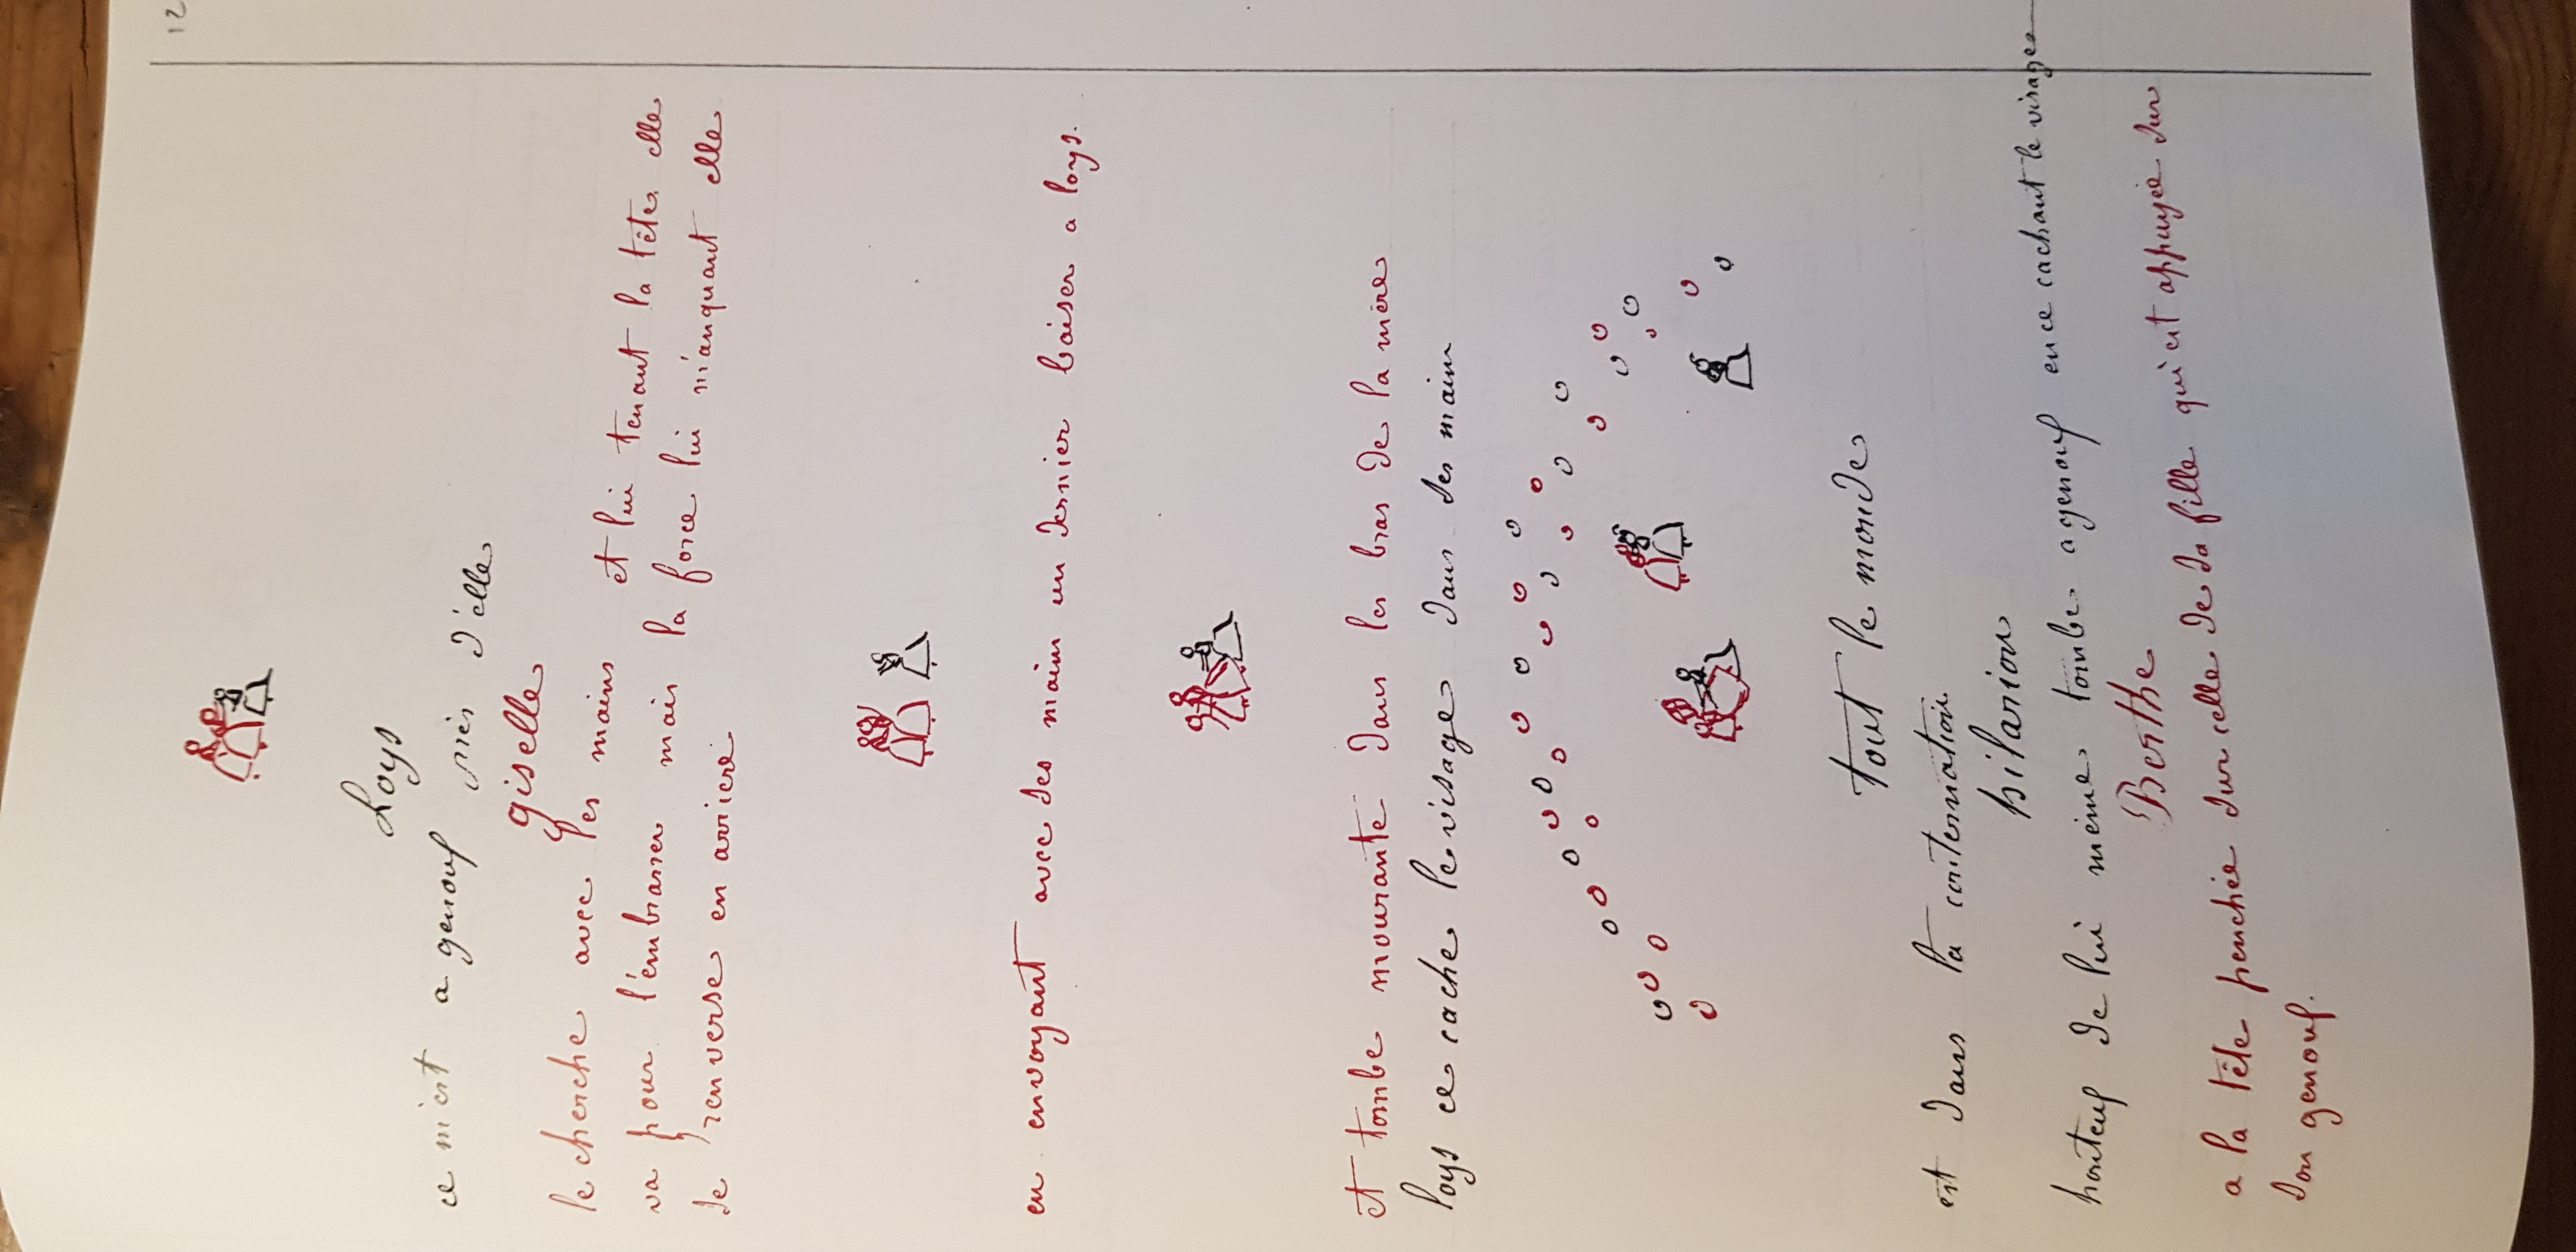 12
Loys
ce met a genouf près d'elle
giselle
le cherche avec les mains et lui tenant la tête elle
va pour l'embrasser mais la force lui manquant elle
se renverse en arriere
en envoyant avec ses main un dernier baiser a loys.
et tombe mourante dans les bras de la mère
loys ce cache le visage dans ses main
tout le monde
est dans la consternation
hilarion
honteuf de lui même tombe a genouf en ce cachant le visage
Berthe
a la tête penchée sur celle de sa fille qui est appuyée sur
son genouf.